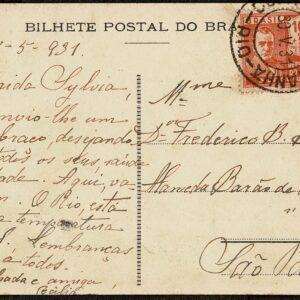 BILHETE POSTAL DO BR
-5-931.
rida Sylvia,
nvio-lhe um
braço, desejando
todos os seus, saúde
dade. Aqui, va
m. O Rio, está
a temperatura
lembranças
a todos.
e amiga,
Cecília
BRASIL
Mme
Dr Frederico B.
Alameda Barão de
São